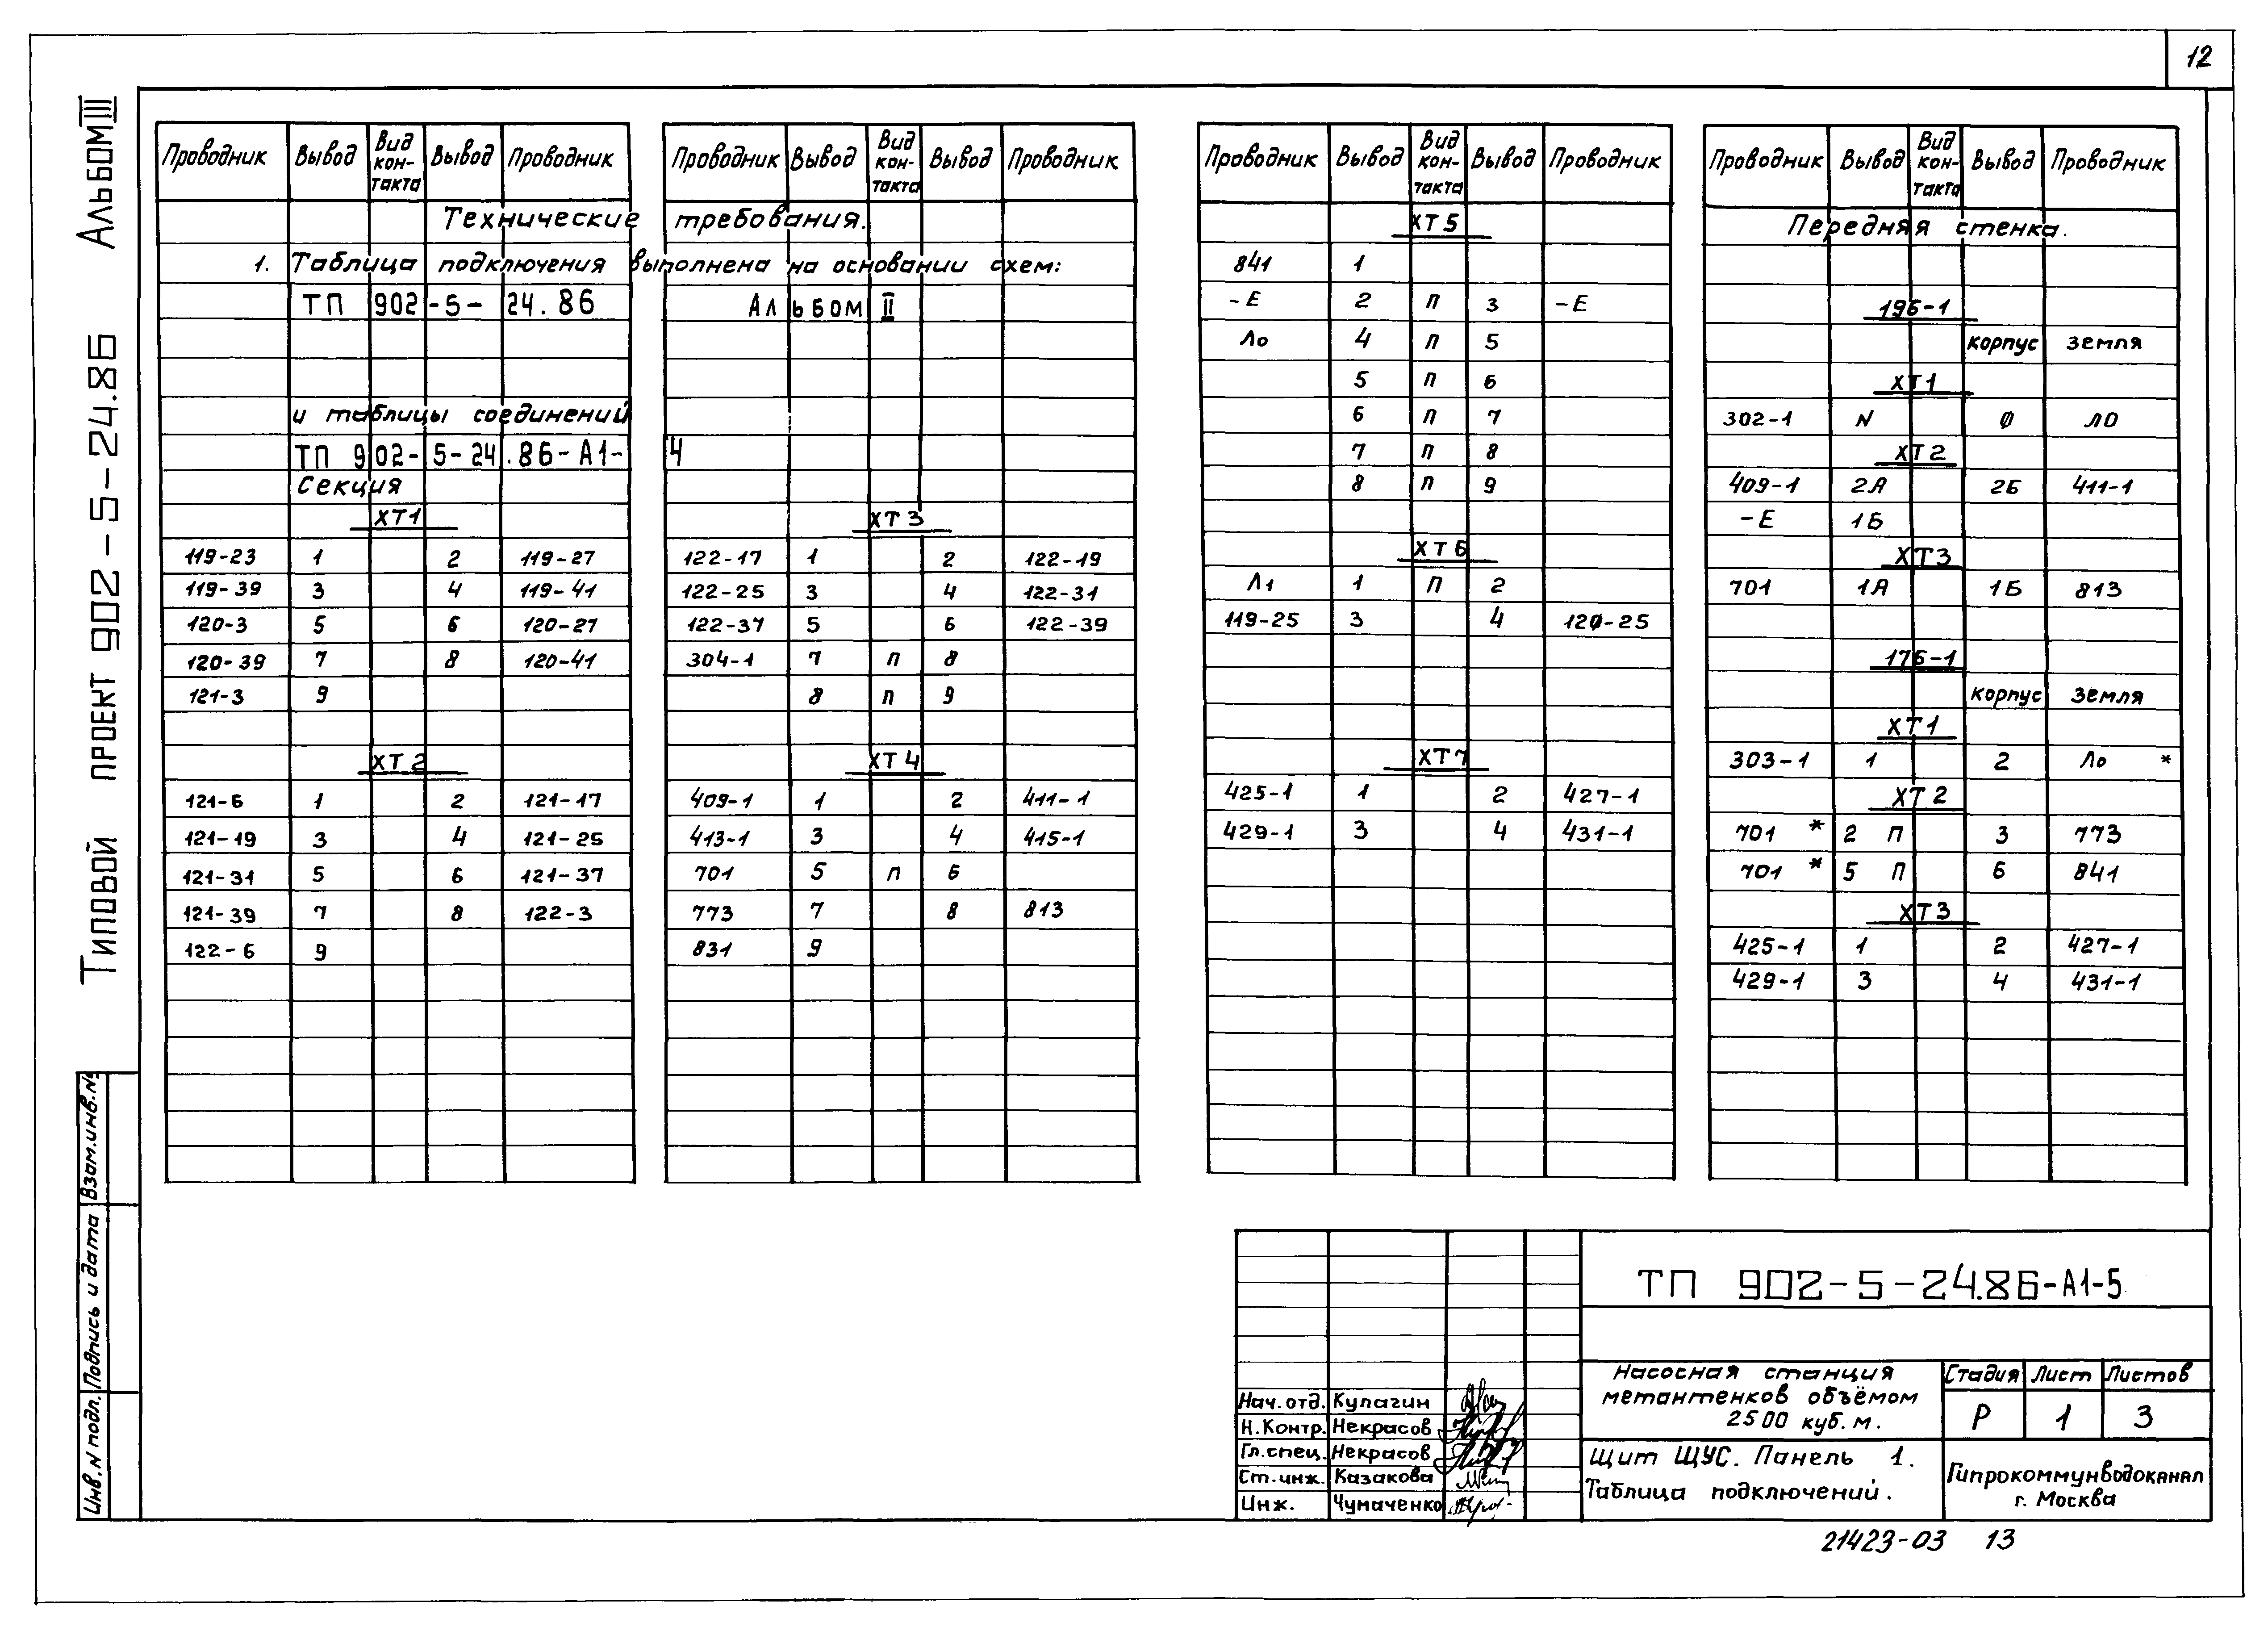 12
Альбом III
Типовой проект 902-5-24.86
Проводник Вывод Вид кон-такта Вывод Проводник
Технические требования.
1. Таблица подключения выполнена на основании схем:
ТП 902-5-24.86 Альбом II
и таблицы соединений
ТП 902-5-24.86-А1-4
Секция
ХТ1
119-23 1 2 119-27
119-39 3 4 119-41
120-3 5 6 120-27
120-39 7 8 120-41
121-3 9
ХТ2
121-6 1 2 121-17
121-19 3 4 121-25
121-31 5 6 121-37
121-39 7 8 122-3
122-6 9
Проводник Вывод Вид кон-такта Вывод Проводник
ХТ3
122-17 1 2 122-19
122-25 3 4 122-31
122-37 5 6 122-39
304-1 7 п 8
8 п 9
ХТ4
409-1 1 2 411-1
413-1 3 4 415-1
701 5 п 6
773 7 8 813
831 9
Проводник Вывод Вид кон-такта Вывод Проводник
ХТ5
841 1
-Е 2 п 3 -Е
Ло 4 п 5
5 п 6
6 п 7
7 п 8
8 п 9
ХТ6
Л1 1 п 2
119-25 3 4 120-25
ХТ7
425-1 1 2 427-1
429-1 3 4 431-1
Проводник Вывод Вид кон-такта Вывод Проводник
Передняя стенка.
19Б-1
корпус земля
ХТ1
302-1 N Ф ЛО
ХТ2
409-1 2А 2Б 411-1
-Е 1Б
ХТ3
701 1А 1Б 813
17Б-1
корпус земля
ХТ1
303-1 1 2 Ло *
ХТ2
701 * 2 П 3 773
701 * 5 П 6 841
ХТ3
425-1 1 2 427-1
429-1 3 4 431-1
Инв.N подл. Подпись и дата Взам.инв.№
ТП 902-5-24.86-А1-5
Нач.отд. Кулагин
Н.Контр. Некрасов
Гл.спец. Некрасов
Ст.инж. Казакова
Инж. Чумаченко
Насосная станция
метантенков объёмом
2500 куб.м.
Стадия Лист Листов
Р 1 3
Щит ЩУС. Панель 1.
Таблица подключений.
Гипрокоммунводоканал
г. Москва
21423-03 13